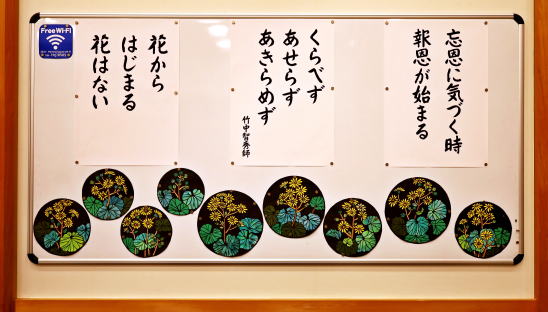 忘恩に気づく時
報恩が始まる
くらべず
あせらず
あきらめず
竹中智秀師
花から
はじまる
花はない
Free Wi-Fi